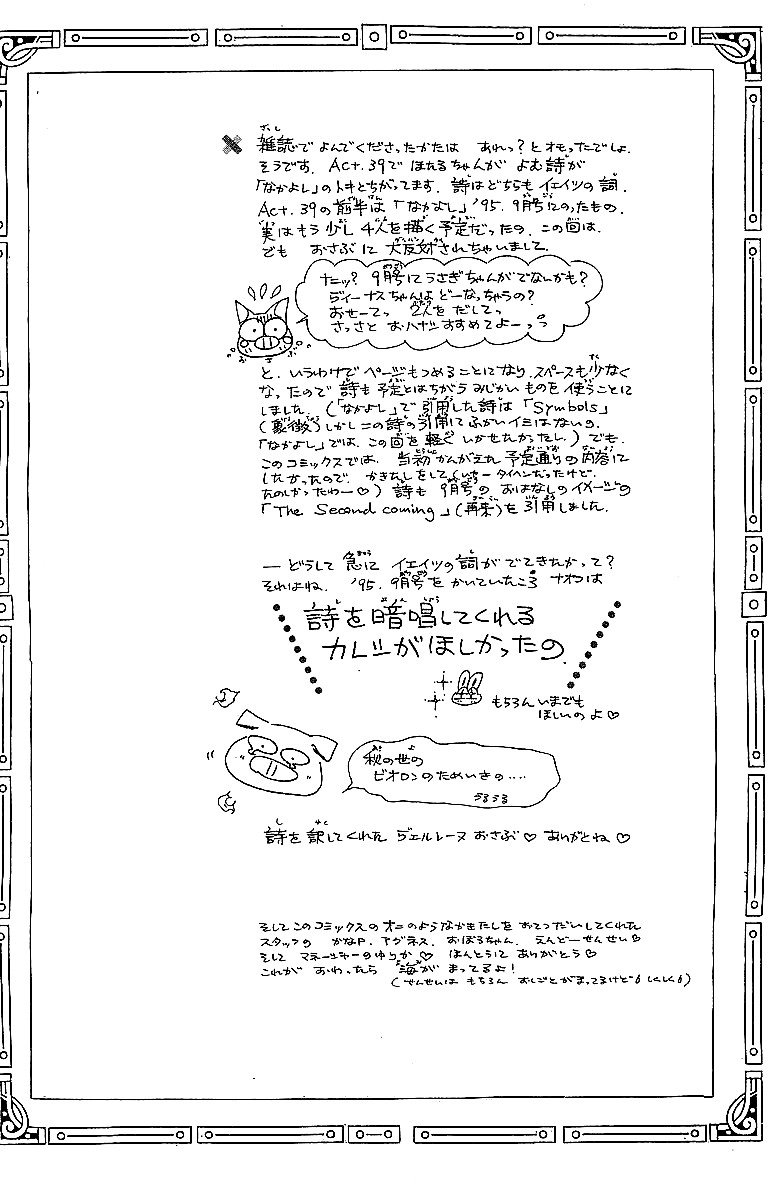 雑誌でよんでくださったかたは あれっ?とオモったでしょ.
そうです. Act.39でほたるちゃんが よむ詩が
「なかよし」のトキとちがってます. 詩はどちらも イェイツの詞.
Act.39の前半は「なかよし」'95. 9月号にのったもの.
実はもう少し 4人を描く予定だったの. この回は.
でも おさぶに 大反対されちゃいまして.
ナニッ? 9月号にうさぎちゃんがでないかも?
ヴィーナスちゃんはどーなっちゃうの?
おせーてっ 2人をだしてっ
さっさと おハナシすすめてよーっっ
おさぶ
と. いうわけで ページもつめることになり. スペースも少なく
なったので 詩も予定とはちがう みじかいものを使うことに
しました. (「なかよし」で引用した詩は「Symbols」
(裏徴) しかしこの詩の引用にふかいイミはないの.
「なかよし」では. この回を軽く いかせたかったし.) でも.
このコミックスでは. 当初かんがえた予定通りの内容に
したかったので. かきたしをして(いやータイヘンだったけど.
たのしかったわー♡) 詩も 9月号の おはなしのイメージの
「The Second coming」(再来)を引用しました.
— どうして急に イェイツの詞がでてきたかって?
それはね. '95. 9月号をかいていたころ ナオコは
詩を暗唱してくれる
カレシがほしかったの.
もちろんいまでも
ほしいのよ♡
秋の世の
ビオロンのためいきの‥‥
うるうる
詩を訳してくれた ヴェルレーヌ おさぶ♡ ありがとね♡
そしてこのコミックスのオニのようなかきたしをおてつだいしてくれた
スタッフの かなP. アグネス. おぼろちゃん. えんどーせんせい♡
そして マネージャーのゆりか♡ ほんとうに ありがとう♡
これが おわったら 海が まってるよ!
(せんせいは もちろん おしごとがまってるけど しくしく)